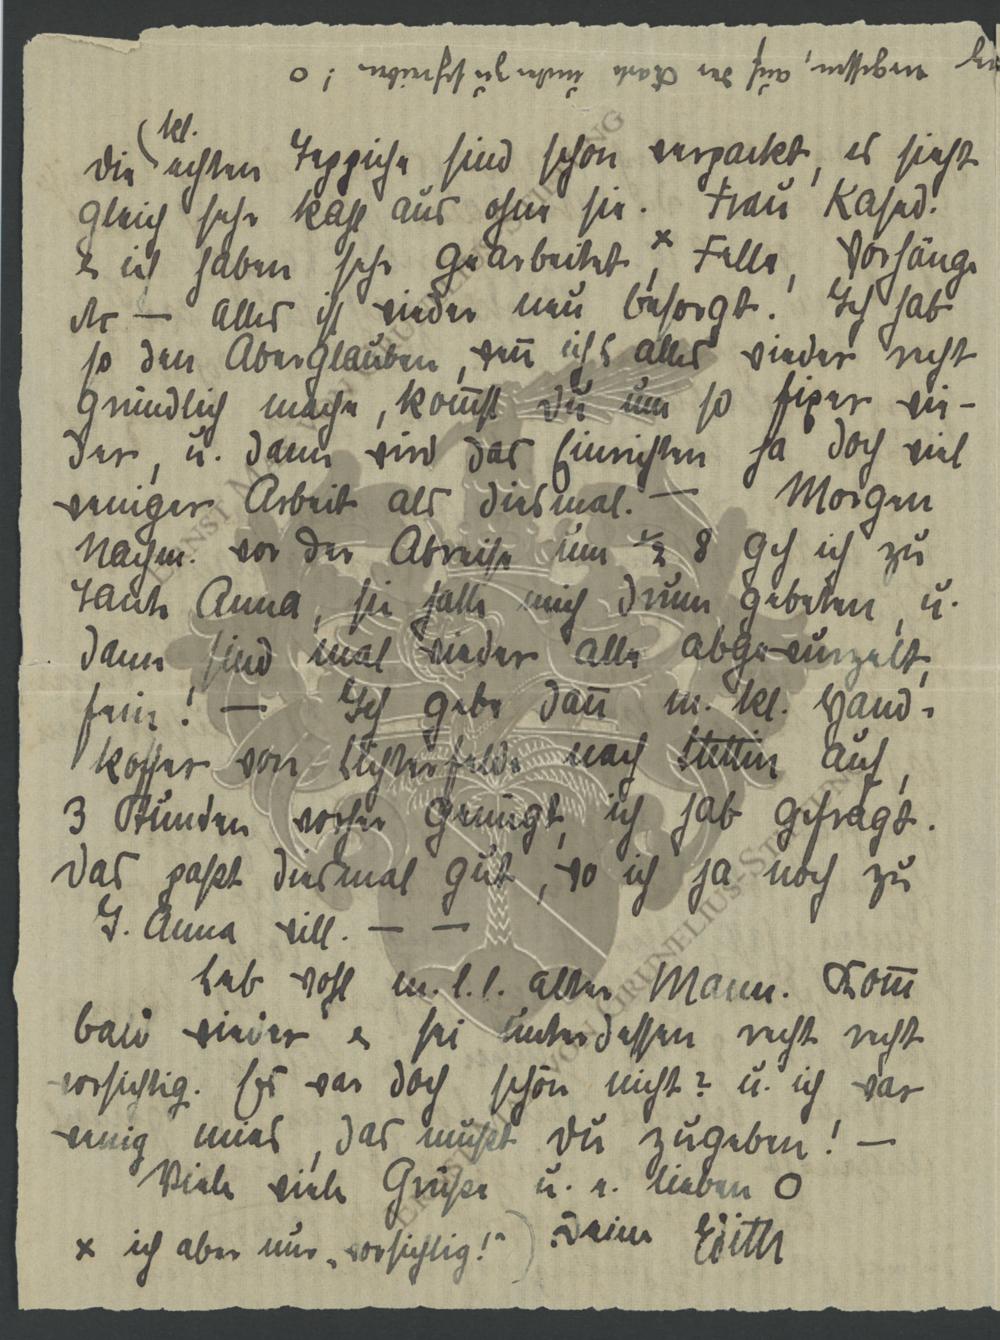 vergessen, auf der Karte unten zu schreiben ! o
kl.
Die echten Teppiche sind schon verpackt, es sieht
gleich sehr kahl aus ohne sie. Frau Kahed.
& ich haben sehr gearbeitet, x Felle, Vorhänge
etc — alles ist wieder neu besorgt. Ich hab
so den Aberglauben, weñ ichs alles wieder recht
gründlich mache, kom̄st Du um so fixer wie-
der, u. dann wird das Einrichten ja doch viel
weniger Arbeit als diesmal. — Morgen
Nachm. vor der Abreise um ½ 8 geh ich zu
Tante Anna, sie hatte mich drum gebeten, u.
dann sind mal wieder alle abgewurzelt,
fein! — Ich gebe dañ m. kl. Hand-
koffer von Lichterfelde nach Stettin auf,
3 Stunden vorher genügt, ich hab gefragt.
Das paßt diesmal gut, wo ich ja noch zu
T. Anna will. — —
Leb wohl m. l. l. alter Mann. Kom̄
bald wieder & sei unterdessen recht recht
vorsichtig. Es war doch schön nicht? u. ich war
wenig mies, das mußt Du zugeben! —
Viele viele Grüße u. e. lieben O
Deine Edith
x ich aber nur „vorsichtig!“)
ERNST
VON HÜNELIUS-STIFTUNG